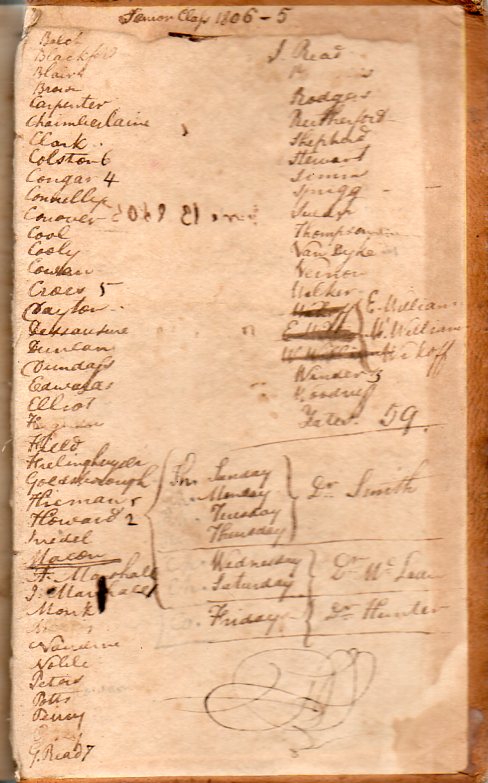 Senior Class 1806-5
Balch
Blackford
Blair
Brown
Carpenter
Chaimberlaine
Clark
Colston 6
Congar 4
Connelly
Conover
Cool
Cooly
Cowan
Croes 5
Dayton
Dessausure
Duncan
Dundass
Edwards
Elliot
Field
Frelinghuyde
Goldsborough
Howard 2
Iredel
Macon
A. Marshall
J. Marshall
Monk
Noble
Peters
Potts
G. Read 7
J. Read
Rodgers
Rutherford
Shepherd
Stewart
Simm
Sprigg
Thompson
Van Dyke
Vernon
Walker
E. William
W. William
Wikoff
Winder 3
Woodruff
Yates 59
Sunday
Monday
Tuesday
Thursday
Dr Smith
Wednesday
Saturday
Dr McLean
Friday
Dr Hunter